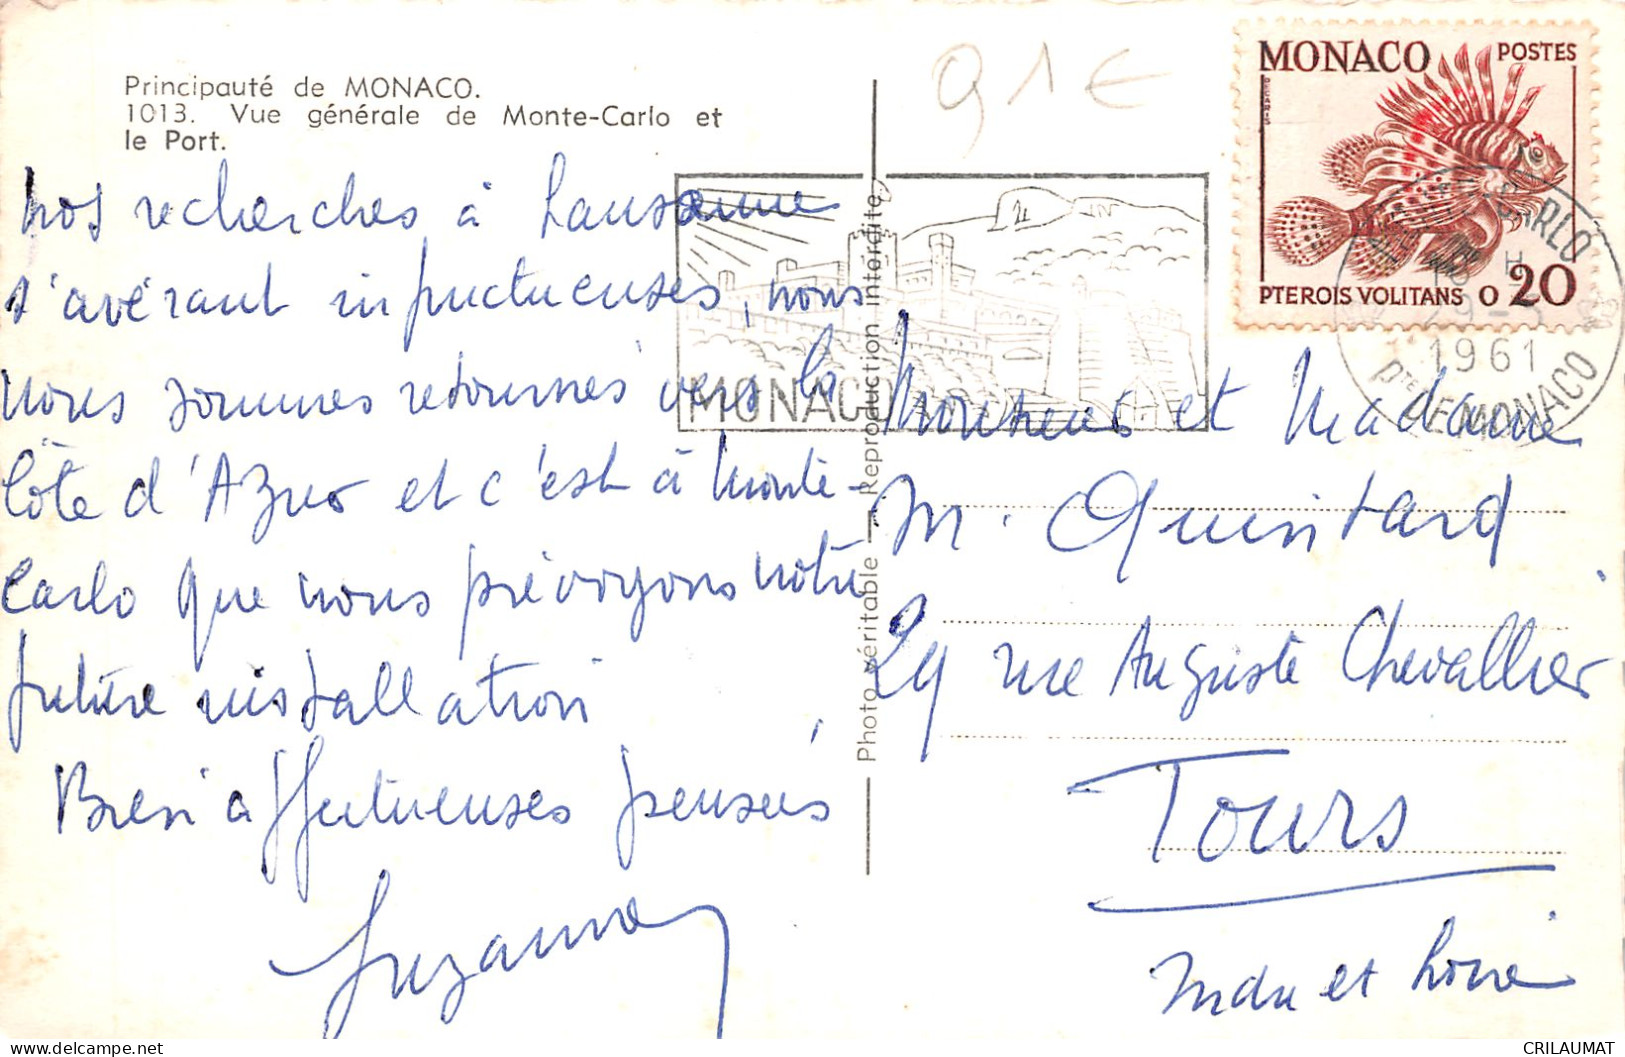 Principauté de MONACO.
1013. Vue générale de Monte-Carlo et
le Port.
91€
MONACO POSTES
PTEROIS VOLITANS 0 20
MONTE-CARLO
1961
Pté DE MONACO
MONACO
Photo véritable — Reproduction interdite
Nos recherches à Lausanne
s'avérant infructueuses, nous
nous sommes retournés vers la
Côte d'Azur et c'est à Monte-
Carlo que nous prévoyons notre
future installation
Bien affectueuses pensées
Suzanne
Monsieur et Madame
M. Quintard
29 rue Auguste Chevallier
Tours
Indre et Loire
CRILAUMAT